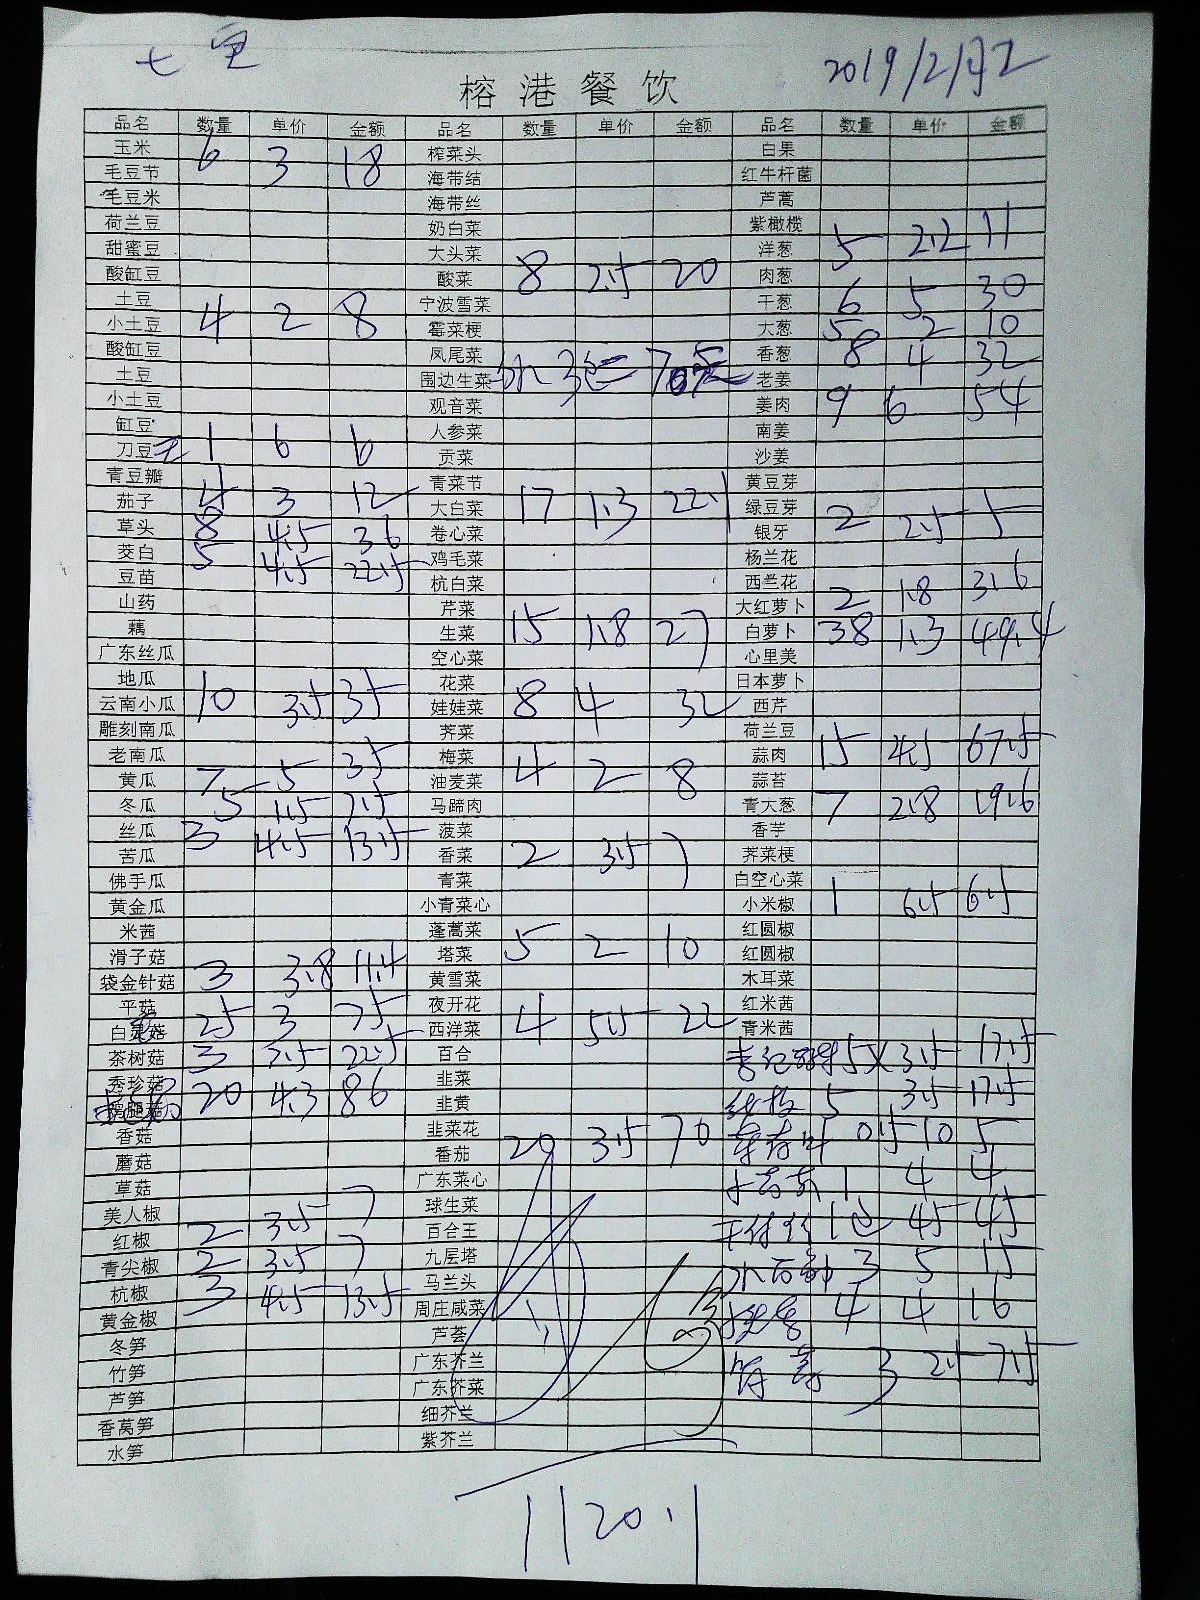 七 里
2019/2/月2
榕港餐饮
品名 数量 单价 金额 品名 数量 单价 金额 品名 数量 单价 金额
玉米 6 3 18 榨菜头 白果
毛豆节 海带结 红牛杆菌
毛豆米 海带丝 芦蒿
荷兰豆 奶白菜 紫橄榄
甜蜜豆 大头菜 洋葱 5 2.2 11
酸缸豆 酸菜 8 2.5 20 肉葱
土豆 宁波雪菜 干葱 6 5 30
小土豆 4 2 8 霉菜梗 大葱 5 2 10
酸缸豆 凤尾菜 香葱 8 4 32
土豆 围边生菜 老姜
小土豆 观音菜 姜肉 9 6 54
缸豆 人参菜 南姜
刀豆 1 6 6 贡菜 沙姜
青豆瓣 青菜节 黄豆芽
茄子 4 3 12 大白菜 17 1.3 22.1 绿豆芽 2 2.5 5
草头 8 4.5 36 卷心菜 银牙
茭白 5 4.5 22.5 鸡毛菜 杨兰花
豆苗 杭白菜 西兰花
山药 芹菜 大红萝卜 2 1.8 3.6
藕 生菜 15 1.8 27 白萝卜 38 1.3 49.4
广东丝瓜 空心菜 心里美
地瓜 花菜 日本萝卜
云南小瓜 10 3.5 35 娃娃菜 8 4 32 西芹
雕刻南瓜 荠菜 荷兰豆
老南瓜 梅菜 蒜肉 15 4.5 67.5
黄瓜 7 5 35 油麦菜 4 2 8 蒜苔
冬瓜 5 1.5 7.5 马蹄肉 青大葱 7 2.8 19.6
丝瓜 3 4.5 13.5 菠菜 香芋
苦瓜 香菜 2 3.5 7 荠菜梗
佛手瓜 青菜 白空心菜
黄金瓜 小青菜心 小米椒 1 6.5 6.5
米茜 蓬蒿菜 红圆椒
滑子菇 塔菜 5 2 10 红圆椒
袋金针菇 3 3.8 11.4 黄雪菜 木耳菜
平菇 夜开花 红米茜
白灵菇 25 3 75 西洋菜 4 5.5 22 青米茜
茶树菇 3 7.5 22.5 百合 5 3.5 17.5
秀珍菇 韭菜
20 4.3 86 韭黄 5 3.5 17.5
香菇 韭菜花
蘑菇 番茄 20 3.5 70 0.5 10 5
草菇 广东菜心 1 4 4
美人椒 球生菜
红椒 2 3.5 7 百合王 1 45 45
青尖椒 2 3.5 7 九层塔 3 5 15
杭椒 3 4.5 13.5 马兰头
黄金椒 周庄咸菜 4 4 16
冬笋 芦荟
竹笋 广东芥兰 3 2.5 7.5
芦笋 广东芥菜
香莴笋 细芥兰
水笋 紫芥兰
1120.1